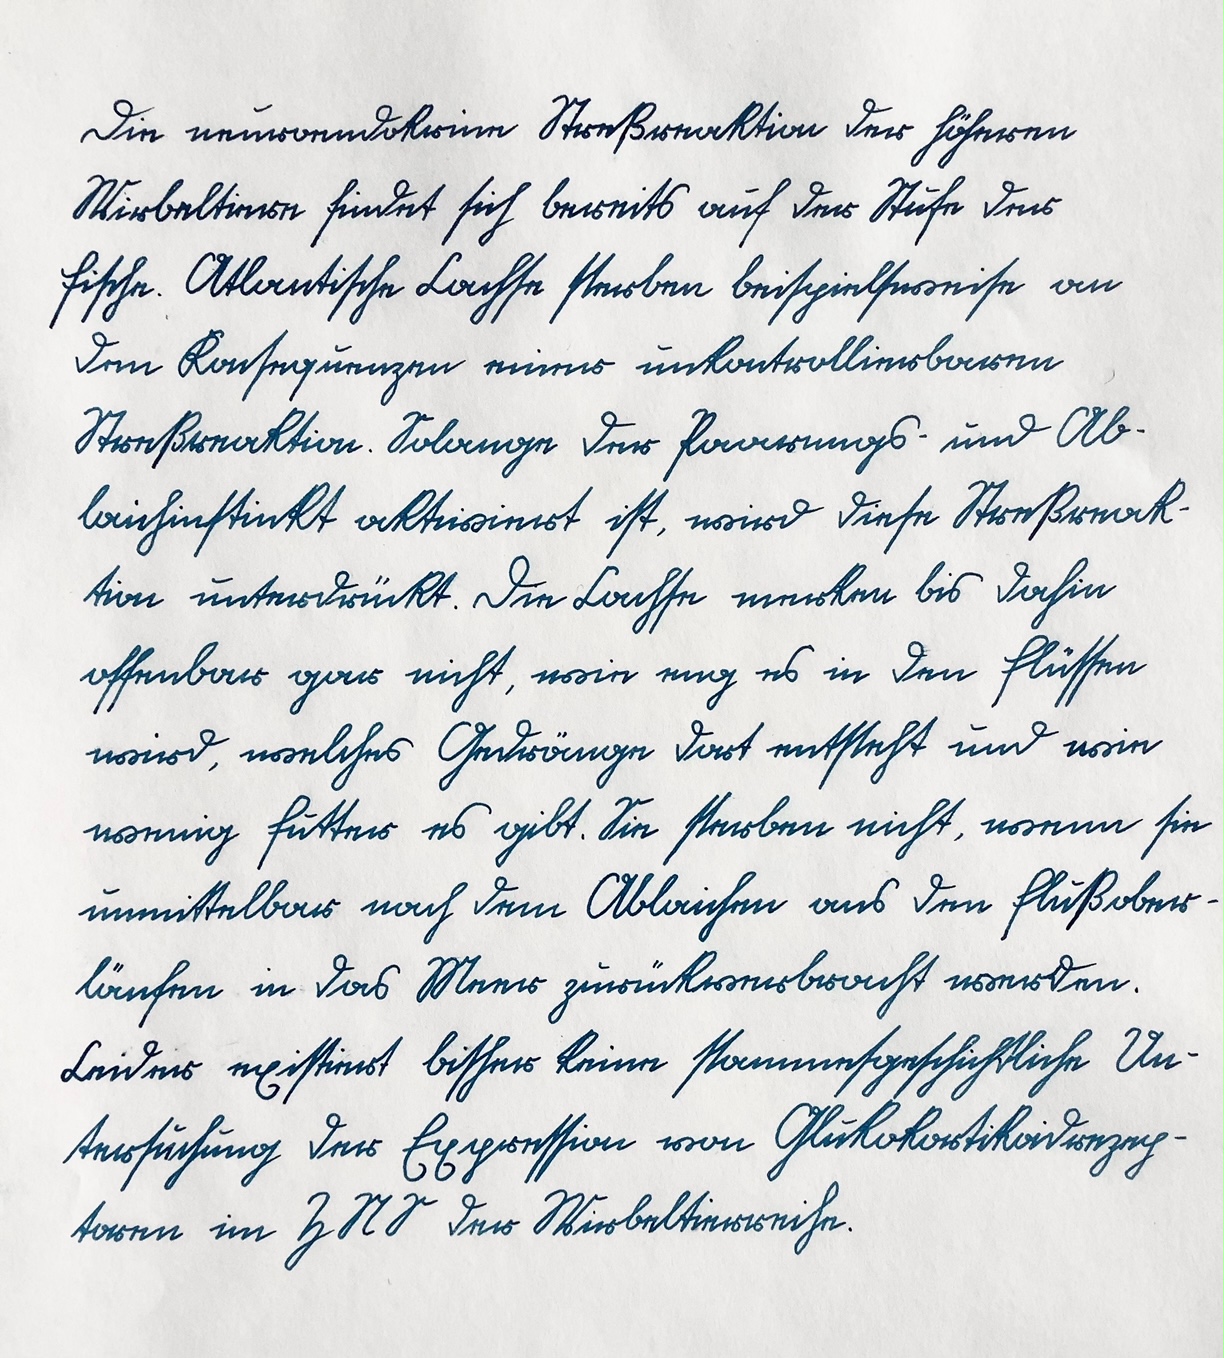 Die neuroendokrine Streßreaktion der höheren
Wirbeltiere findet sich bereits auf der Stufe der
Fische. Atlantische Lachse sterben beispielsweise an
den Konsequenzen einer unkontrollierbaren
Streßreaktion. Solange der Paarungs- und Ab-
laichinstinkt aktiviert ist, wird diese Streßreak-
tion unterdrückt. Die Lachse merken bis dahin
offenbar gar nicht, wie eng es in den Flüssen
wird, welches Gedränge dort entsteht und wie
wenig Futter es gibt. Sie sterben nicht, wenn sie
unmittelbar nach dem Ablaichen aus den Flußober-
läufen in das Meer zurückverbracht werden.
Leider existiert bisher keine stammesgeschichtliche Un-
tersuchung der Expression von Glukokortikoidrezep-
toren im ZNS der Wirbeltierreihe.